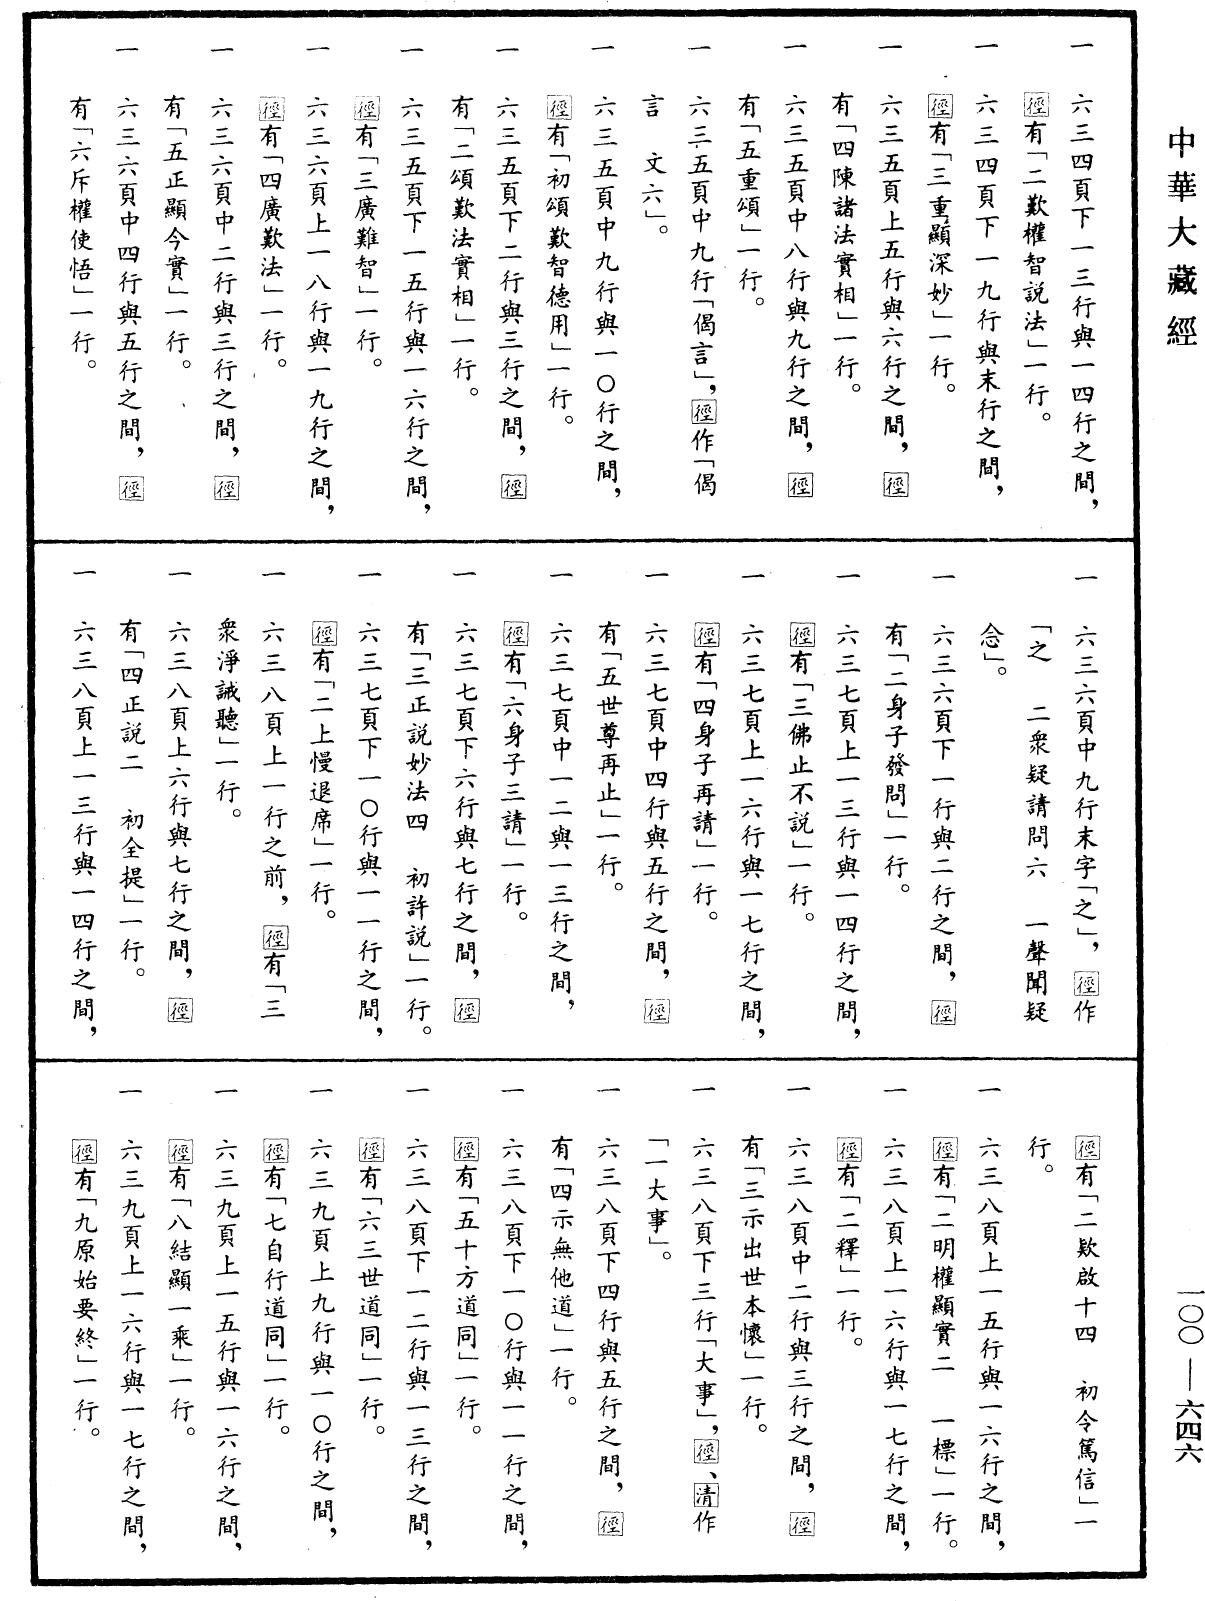 中華大藏經
一 六三四頁下一三行與一四行之間，
徑有「二歎權智説法」一行。
一 六三四頁下一九行與末行之間，
徑有「三重顯深妙」一行。
一 六三五頁上五行與六行之間，徑
有「四陳諸法實相」一行。
一 六三五頁中八行與九行之間，徑
有「五重頌」一行。
一 六三五頁中九行「偈言」，徑作「偈
言 文六」。
一 六三五頁中九行與一〇行之間，
徑有「初頌歎智德用」一行。
一 六三五頁下二行與三行之間，徑
有「二頌歎法實相」一行。
一 六三五頁下一五行與一六行之間，
徑有「三廣難智」一行。
一 六三六頁上一八行與一九行之間，
徑有「四廣歎法」一行。
一 六三六頁中二行與三行之間，徑
有「五正顯今實」一行。
一 六三六頁中四行與五行之間，徑
有「六斥權使悟」一行。
一 六三六頁中九行末字「之」，徑作
「之 二衆疑請問六 一聲聞疑
念」。
一 六三六頁下一行與二行之間，徑
有「二身子發問」一行。
一 六三七頁上一三行與一四行之間，
徑有「三佛止不説」一行。
一 六三七頁上一六行與一七行之間，
徑有「四身子再請」一行。
一 六三七頁中四行與五行之間，徑
有「五世尊再止」一行。
一 六三七頁中一二與一三行之間，
徑有「六身子三請」一行。
一 六三七頁下六行與七行之間，徑
有「三正説妙法四 初許説」一行。
一 六三七頁下一〇行與一一行之間，
徑有「二上慢退席」一行。
一 六三八頁上一行之前，徑有「三
衆淨誡聽」一行。
一 六三八頁上六行與七行之間，徑
有「四正説二 初全提」一行。
一 六三八頁上一三行與一四行之間，
徑有「二欵啟十四 初令篤信」一
行。
一 六三八頁上一五行與一六行之間，
徑有「二明權顯實二 一標」一行。
一 六三八頁上一六行與一七行之間，
徑有「二釋」一行。
一 六三八頁中二行與三行之間，徑
有「三示出世本懷」一行。
一 六三八頁下三行「大事」，徑、清作
「一大事」。
一 六三八頁下四行與五行之間，徑
有「四示無他道」一行。
一 六三八頁下一〇行與一一行之間，
徑有「五十方道同」一行。
一 六三八頁下一二行與一三行之間，
徑有「六三世道同」一行。
一 六三九頁上九行與一〇行之間，
徑有「七自行道同」一行。
一 六三九頁上一五行與一六行之間，
徑有「八結顯一乘」一行。
一 六三九頁上一六行與一七行之間，
徑有「九原始要終」一行。
一〇〇——六四六